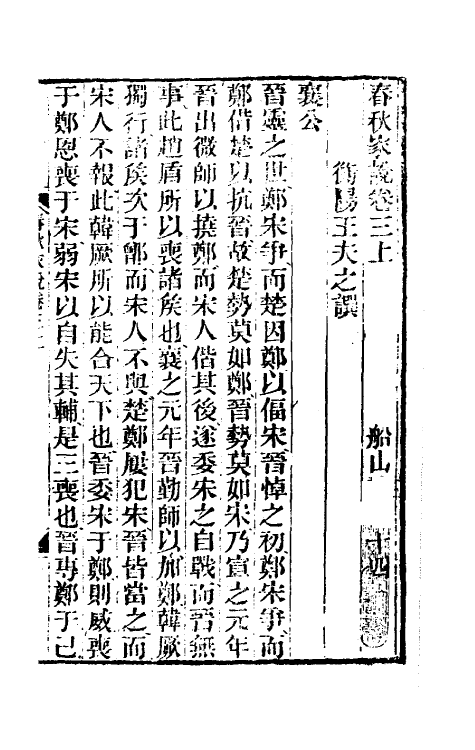 春秋家說卷三上 船山 十四
衡陽王夫之譔
襄公
晉靈之世鄭宋爭而楚因鄭以偪宋晉悼之初鄭宋爭而
鄭偕楚以抗晉故楚勢莫如鄭晉勢莫如宋乃宣之元年
晉出微師以撓鄭而宋人偕其後遂委宋之自戰而晉無
事此趙盾所以喪諸矦也襄之元年晉勤師以加鄭韓厥
獨行諸矦次于鄫而宋人不與楚鄭屢犯宋晉皆當之而
宋人不報此韓厥所以能合天下也晉委宋于鄭則威喪
于鄭恩喪于宋弱宋以自失其輔是三喪也晉專鄭于己